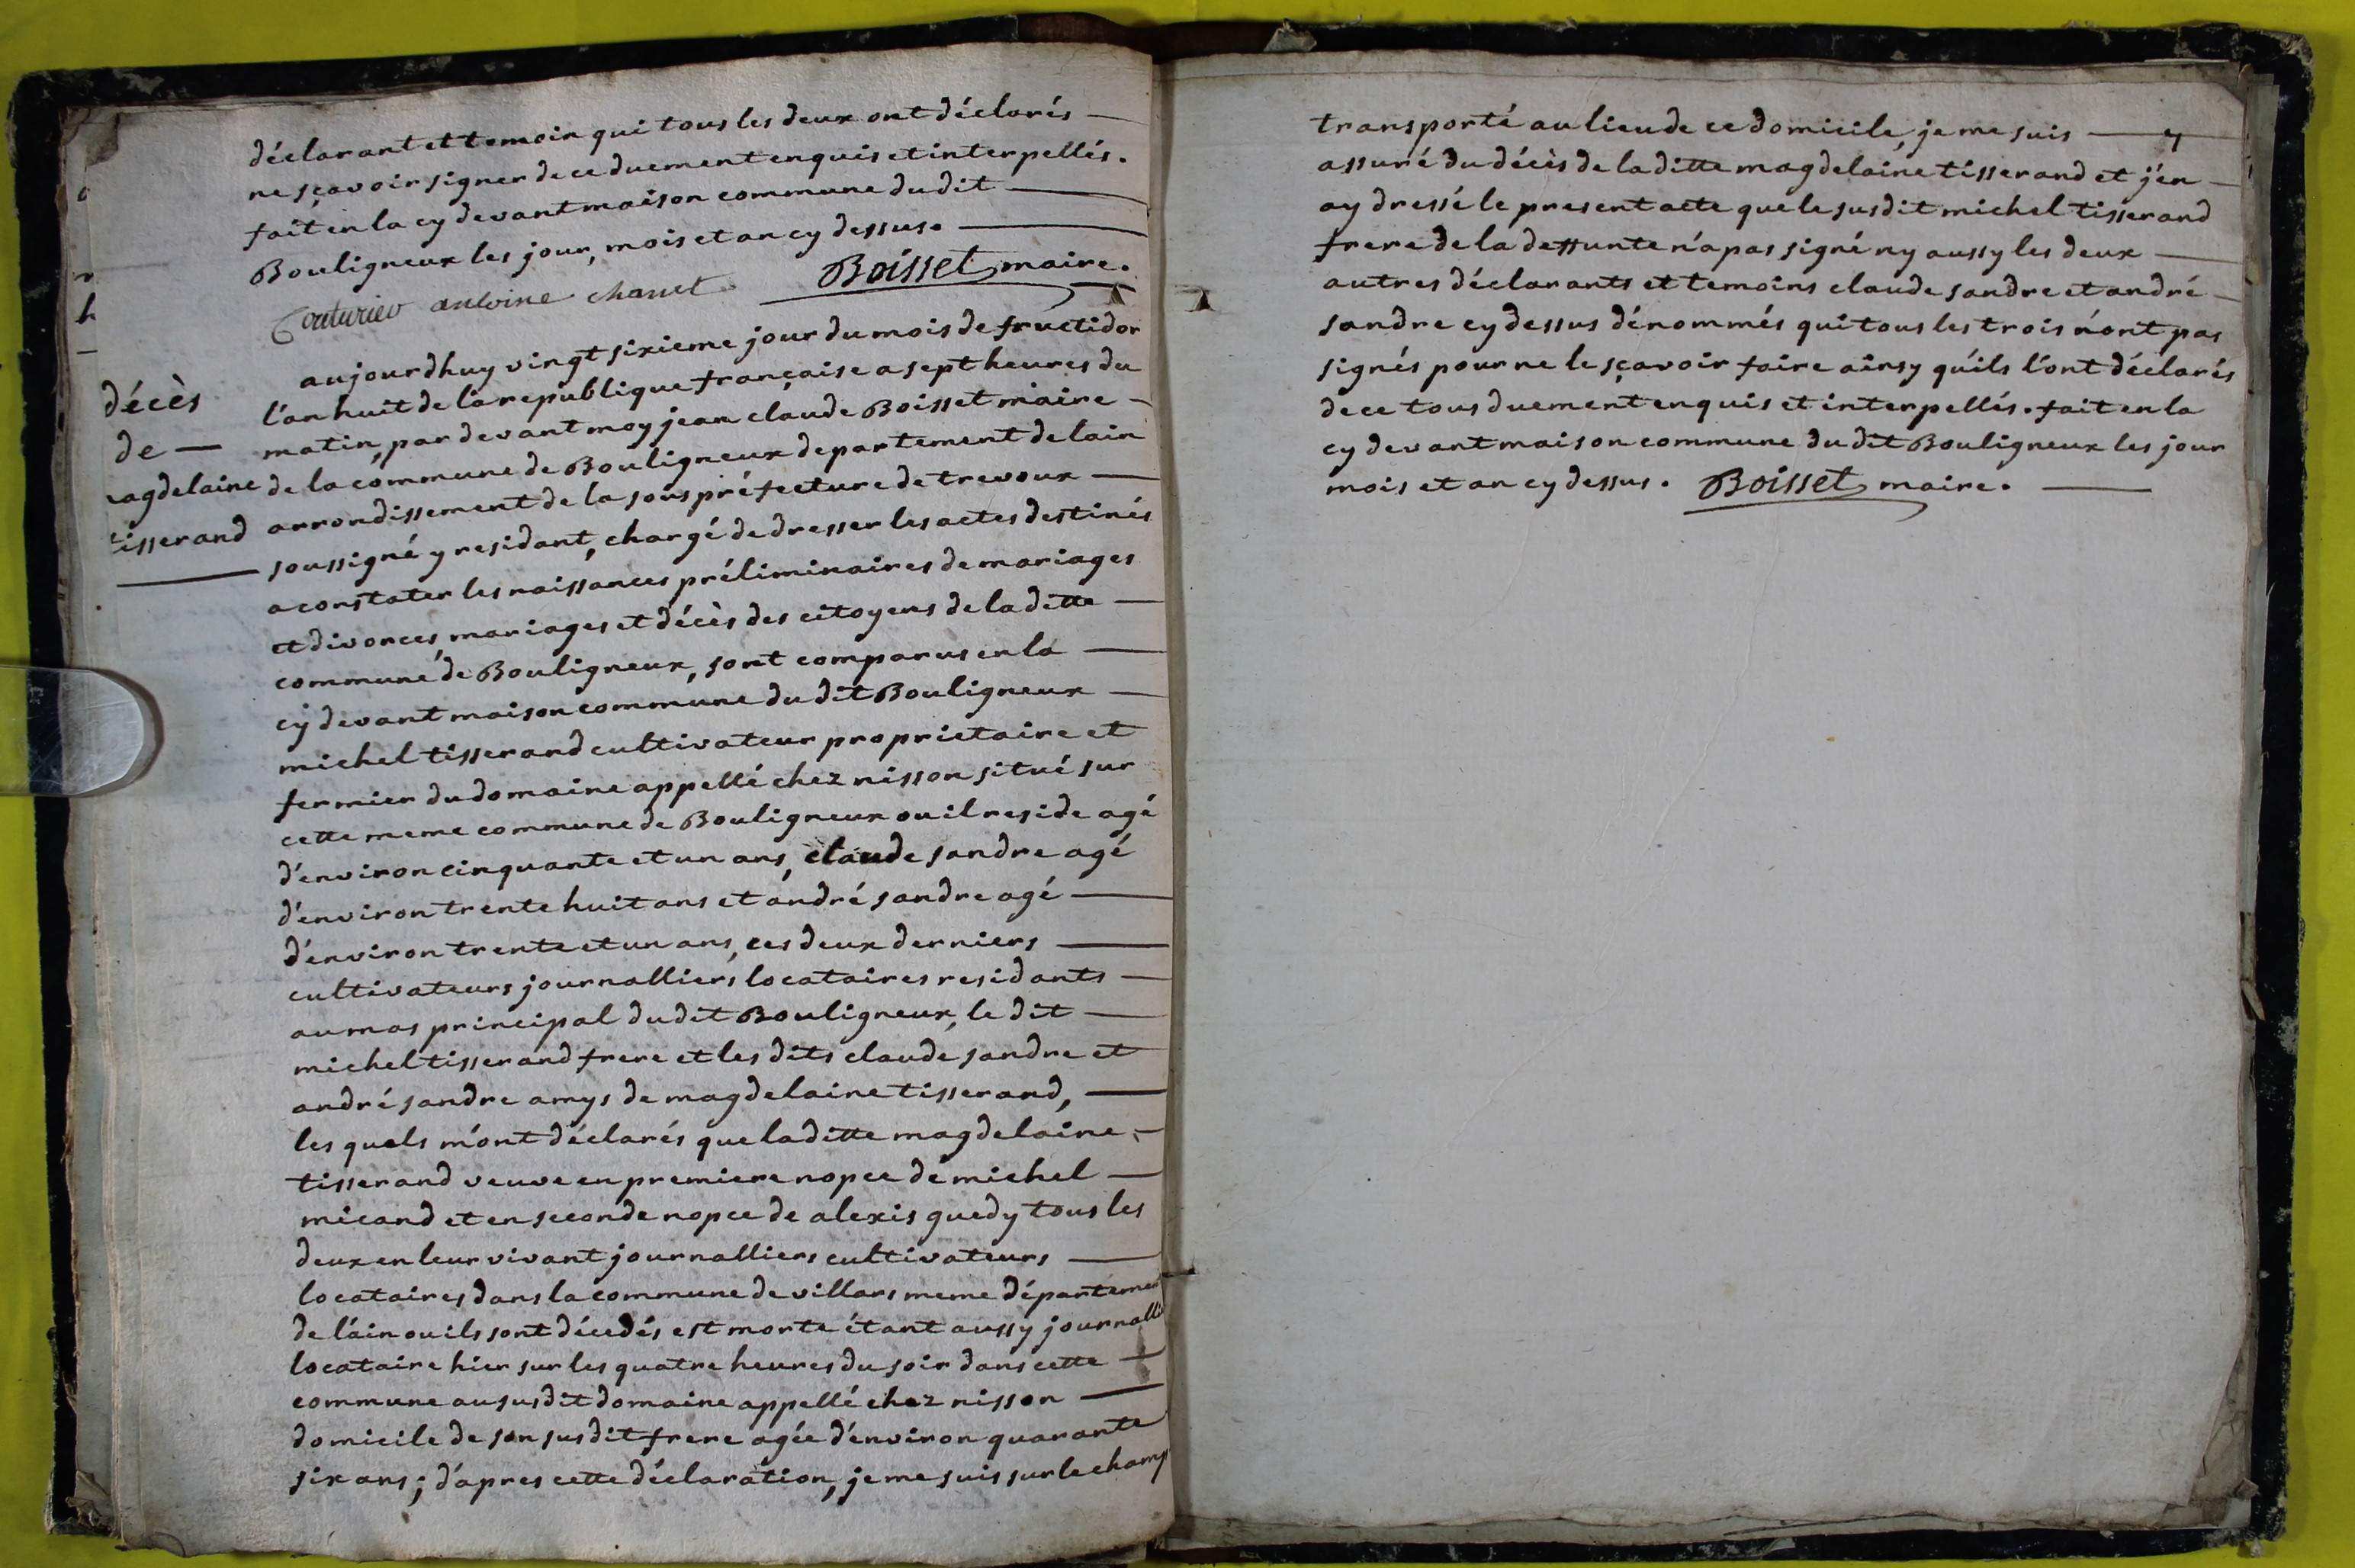 déclarant et temoin qui tous les deux ont déclarés —
ne sçavoir signer de ce duement enquis et interpellés.
fait en la cy devant maison commune du dit —
Bouligneux les jour, mois et an cy dessus. —
Couturier antoine Boisset maire.
décès
de —
magdelaine
tisserand
aujourdhuy vingt sixieme jour du mois de fructidor
l'an huit de la republique française a sept heures du
matin, par devant moy jean claude Boisset maire —
de la commune de Bouligneux departement de lain
arrondissement de la sous préfecture de trevoux —
soussigné y residant, chargé de dresser les actes destinés
a constater les naissances préliminaires de mariages
et divorces, mariages et décès des citoyens de la ditte —
commune de Bouligneux, sont comparus en la —
cy devant maison commune du dit Bouligneux —
michel tisserand cultivateur proprietaire et
fermier du domaine appellé chez nisson situé sur
cette meme commune de Bouligneux ou il reside agé
d'environ cinquante et un ans, claude sandre agé
d'environ trente huit ans et andré sandre agé —
d'environ trente et un ans, ces deux derniers —
cultivateurs journalliers locataires residants —
au mas principal du dit Bouligneux, le dit —
michel tisserand frere et les dits claude sandre et
andré sandre amys de magdelaine tisserand, —
les quels m'ont déclarés que la ditte magdelaine —
tisserand veuve en premiere nopce de michel —
micand et en seconde nopce de alexis guedy tous les
deux en leur vivant journalliers cultivateurs —
locataires dans la commune de villars meme département
de l'ain ou ils sont décedés est morte étant aussy journalli
locataire hier sur les quatre heures du soir dans cette —
commune au susdit domaine appellé chez nisson —
domicile de son susdit frere agée d'environ quarante
six ans; d'apres cette déclaration, je me suis sur le champ
transporté au lieu de ce domicile, je me suis —
assuré du décès de la ditte magdelaine tisserand et j'en —
ay dressé le present acte que le susdit michel tisserand
frere de la deffunte n'a pas signé ny aussy les deux —
autres déclarants et temoins claude sandre et andré —
sandre cy dessus dénommés qui tous les trois n'ont pas
signés pour ne le sçavoir faire ainsy qu'ils l'ont déclarés
de ce tous duement enquis et interpellés. fait en la
cy devant maison commune du dit Bouligneux les jour
mois et an cy dessus. Boisset maire. —